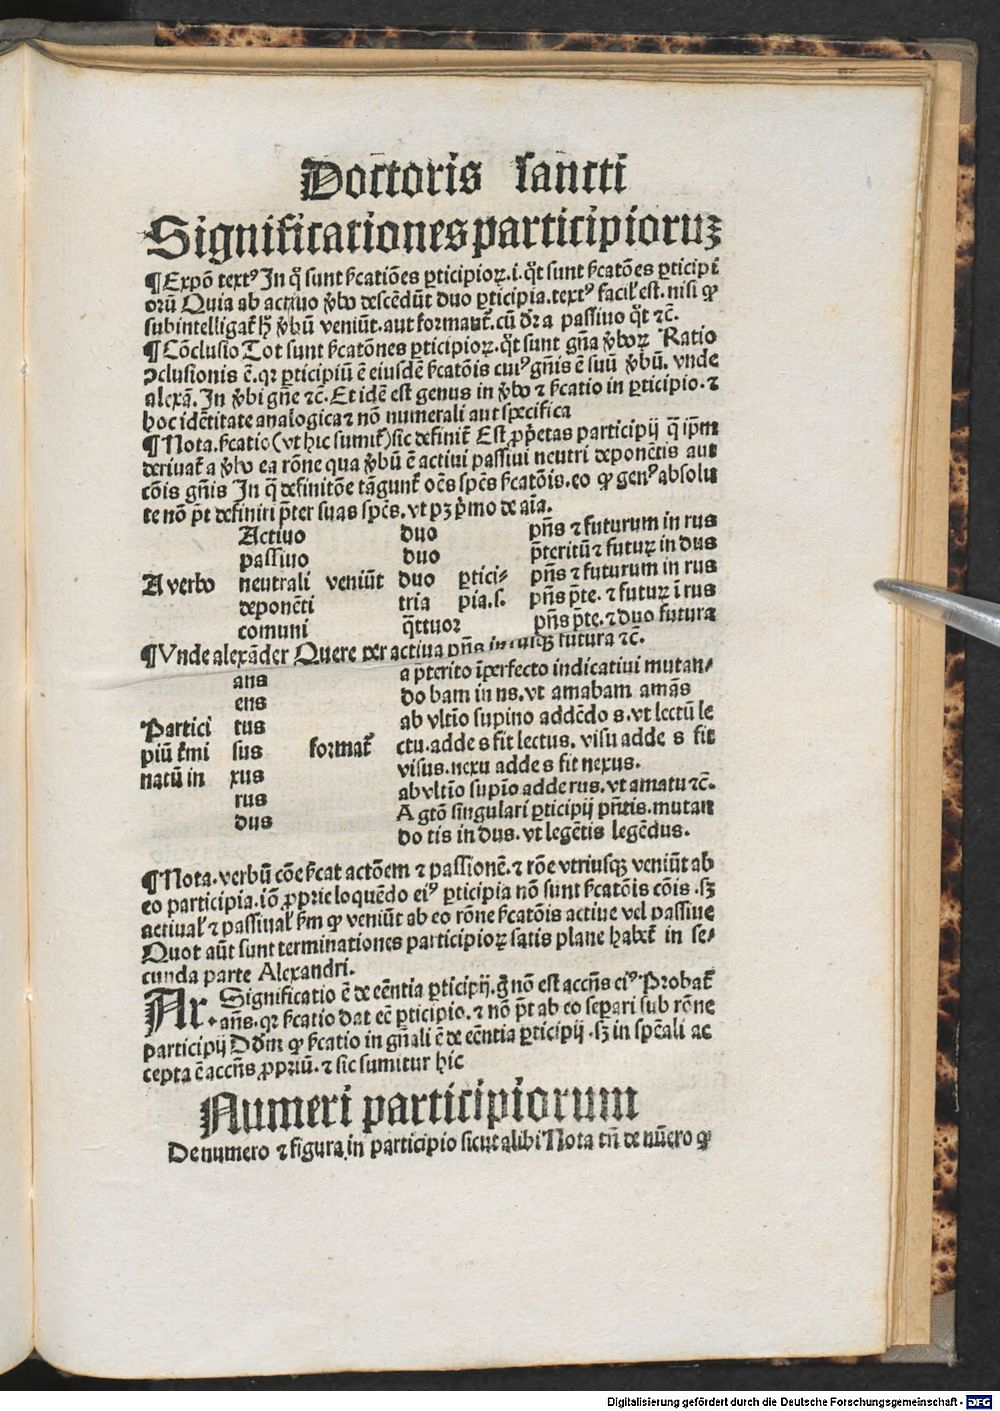 Doctoris sancti
Significationes participioruꝫ
¶Expõ textꝰ In q̃ sunt ſcatiões ꝑticipioꝝ.i.q̃t sunt ſcatões ꝑticipi
orũ Quia ab actiuo ꝟbo descẽdũt duo ꝑticipia.textꝰ facilꝭ est. nisi ꝙ
subintelligat᷑ ꝟbũ veniũt.aut format᷑. cũ dr̃ a passiuo q̃t ⁊c̃.
¶Cõclusio Tot sunt ſcatõnes ꝑticipioꝝ.q̃t sunt gña ꝟboꝝ Ratio
ꝯclusionis ẽ.qꝛ ꝑticipiũ ẽ eiusdẽ ſcatõis cuiꝰ gñis ẽ suũ ꝟbũ. vnde
alexã. In ꝟbi gñe ⁊c̃. Et idẽ est genus in ꝟbo ⁊ ſcatio in ꝑticipio.⁊
hoc idẽtitate analogica ⁊ nõ numerali aut specifica
¶Nota.ſcatio(vt hic sumit᷑)sic definit᷑ Est ꝓp̃etas participij q̃ ip̃m
deriuat᷑ a ꝟbo ea rõne qua ꝟbũ ẽ actiui passiui neutri deponẽtis aut
cõis gñis In q̃ definitõe tãgunt᷑ oẽs sp̃es ſcatõis.eo ꝙ genꝰ absolu
te nõ p̃t definiri p̃ter suas sp̃es.vt pꝫ p̃mo de aĩa.
Actiuo duo pñs ⁊ futurum in rus
passiuo duo p̃teritũ ⁊ futuꝝ in dus
A verbo neutrali veniũt duo ꝑtici⸗ pñs ⁊ futurum in rus
deponẽti tria pia.s. pñs p̃te.⁊ futuꝝ ĩ rus
comuni q̃ttuor pñs p̃te.⁊ duo futura
¶Vnde alexãder Quere per actiua pñs futura ⁊c̃.
ans a p̃terito ĩperfecto indicatiui mutan⸗
ens do bam in ns.vt amabam amãs
Partici tus ab vltĩo supino addẽdo s.vt lectũ le
piũ t̃mi sus format᷑ ctu.adde s fit lectus. visu adde s fit
natũ in xus visus.nexu adde s fit nexus.
rus ab vltĩo supĩo adde rus.vt amatu ⁊c̃.
dus A gtõ singulari ꝑticipij pñtis.mutan
do tis in dus.vt legẽtis legẽdus.
¶Nota.verbũ cõe ſcat actõem ⁊ passionẽ.⁊ rõe vtriusqꝫ veniũt ab
eo participia.iõ ꝓprie loquẽdo eiꝰ ꝑticipia nõ sunt ſcatõis cõis.sꝫ
actiualꝭ ⁊ passiualꝭ ſm ꝙ veniũt ab eo rõne ſcatõis actiue vel passiue
Quot aũt sunt terminationes participioꝝ satis plane habet᷑ in se⸗
cunda parte Alexandri.
Ar. Significatio ẽ de eẽntia ꝑticipij.g̃ nõ est accñs eiꝰ Probat᷑
añs.qꝛ ſcatio dat eẽ ꝑticipio.⁊ nõ p̃t ab eo separi sub rõne
participij Dd̃m ꝙ ſcatio in gñali ẽ de eẽntia ꝑticipij.sꝫ in sp̃cali ac
cepta ẽ accñs ꝓpriũ.⁊ sic sumitur hic
Numeri participiorum
De numero ⁊ figura in participio sicut alibi Nota tñ de nũero ꝙ
Digitalisierung gefördert durch die Deutsche Forschungsgemeinschaft - DFG